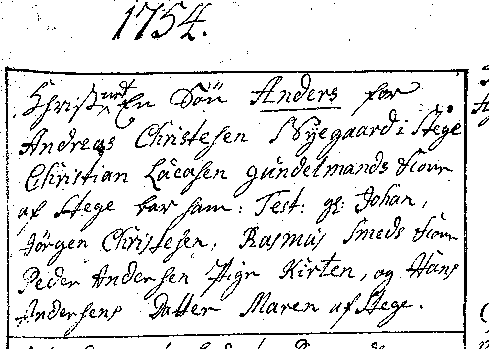 1754.
Christnet En Sön Anders for
Andreas Christesen i Nyegaard i Stege
Christian Lucasen Gündelmands Kone
af Stege bar ham: Test: gl: Johan,
Jörgen Christesen, Rasmus Smeds Kone
Peder Andersen Pige Kirten, og Hans
Andersens Datter Maren af Stege.